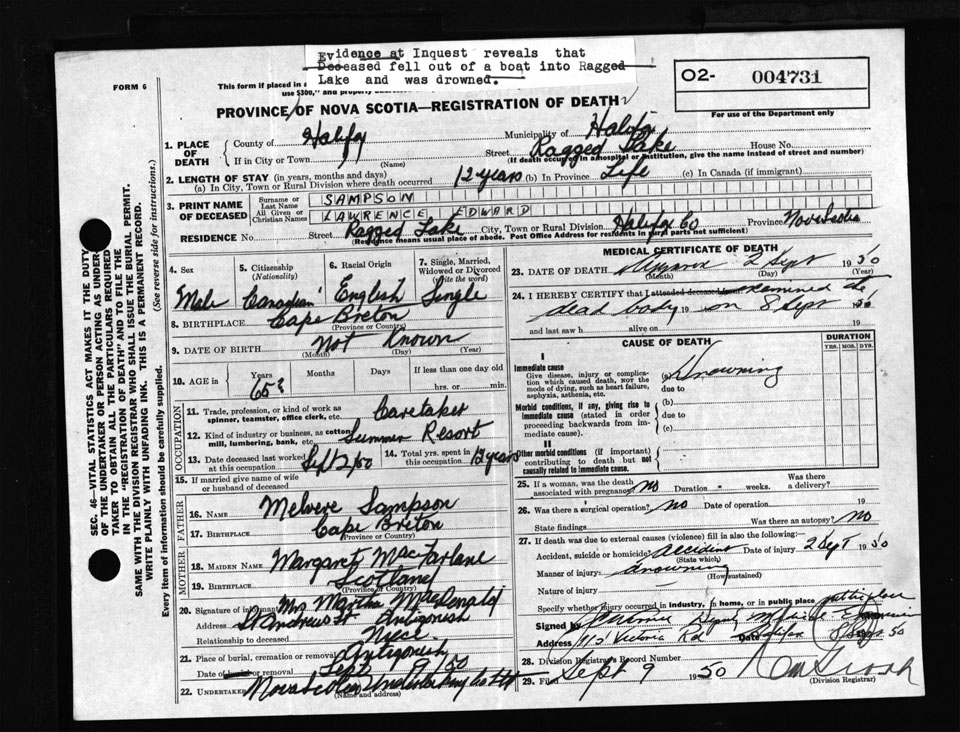 Evidence at Inquest reveals that
Deceased fell out of a boat into Ragged
Lake and was drowned.
FORM 6
This form if placed in
use $300," and properly
O2- 004731
For use of the Department only
PROVINCE OF NOVA SCOTIA—REGISTRATION OF DEATH
1. PLACE OF DEATH
County of Halifax Municipality of Halifax
If in City or Town (Name) Street Ragged Lake House No.
(If death occurred in a hospital or institution, give the name instead of street and number)
2. LENGTH OF STAY (in years, months and days)
(a) In City, Town or Rural Division where death occurred 12 years (b) In Province Life (c) In Canada (if immigrant)
3. PRINT NAME OF DECEASED
Surname or Last Name SAMPSON
All Given or Christian Names LAWRENCE EDWARD
RESIDENCE No. Street Ragged Lake City, Town or Rural Division Halifax Co Province Nova Scotia
(Residence means usual place of abode. Post Office Address for residents in rural parts not sufficient)
SEC. 46—VITAL STATISTICS ACT MAKES IT THE DUTY
OF THE UNDERTAKER OR PERSON ACTING AS UNDERTAKER TO OBTAIN ALL THE PARTICULARS REQUIRED
IN THE "REGISTRATION OF DEATH" AND TO FILE THE
SAME WITH THE DIVISION REGISTRAR WHO SHALL ISSUE THE BURIAL PERMIT.
WRITE PLAINLY WITH UNFADING INK. THIS IS A PERMANENT RECORD.
Every item of information should be carefully supplied. (See reverse side for instructions.)
4. Sex
Male
5. Citizenship
(Nationality)
Canadian
6. Racial Origin
English
7. Single, Married,
Widowed or Divorced
(Write the word)
Single
8. BIRTHPLACE Cape Breton
(Province or Country)
9. DATE OF BIRTH Not Known
(Month) (Day) (Year)
10. AGE in Years Months Days If less than one day old
65? hrs. or min.
OCCUPATION
11. Trade, profession, or kind of work as
spinner, teamster, office clerk, etc. Caretaker
12. Kind of industry or business, as cotton
mill, lumbering, bank, etc. Summer Resort
13. Date deceased last worked
at this occupation Sept 2/50
14. Total yrs. spent in
this occupation 12 years
15. If married give name of wife
or husband of deceased
FATHER
16. Name Sampson
17. Birthplace Cape Breton
(Province or Country)
MOTHER
18. MAIDEN NAME Margaret MacFarlane
19. BIRTHPLACE Scotland
(Province or Country)
20. Signature of informant Mrs Martha MacDonald
Address St Andrews St Antigonish
Relationship to deceased Niece
21. Place of burial, cremation or removal Antigonish
Date of burial or removal Sept 9/50
22. UNDERTAKER Nova Scotia Undertaking Co Ltd
(Name and address)
MEDICAL CERTIFICATE OF DEATH
23. DATE OF DEATH 2 Sept 1950
(Month) (Day) (Year)
24. I HEREBY CERTIFY that I attended deceased from examined the
dead body 19 on 8 Sept 1950
and last saw h alive on 19
CAUSE OF DEATH
DURATION
YRS. MOS. DYS.
I
Immediate cause
Give disease, injury or complication which caused death, NOT the
mode of dying, such as heart failure,
asphyxia, asthenia, etc.
(a) Drowning
due to
Morbid conditions, if any, giving rise to
immediate cause (stated in order
proceeding backwards from immediate cause).
(b)
due to
(c)
II
Other morbid conditions (if important)
contributing to death but not
causally related to immediate cause.
25. If a woman, was the death
associated with pregnancy? no Duration weeks. Was there
a delivery?
26. Was there a surgical operation? no Date of operation 19
State findings Was there an autopsy? no
27. If death was due to external causes (violence) fill in also the following:
Accident, suicide or homicide? accident Date of injury 2 Sept 1950
(State which)
Manner of injury drowning
(How sustained)
Nature of injury
Specify whether injury occurred in industry, in home, or in public place public place
Signed by Deputy Medical
Address Victoria Rd Date Halifax 8 Sept 50
28. Division Registrar's Record Number
29. Filed Sept 9 1950
(Division Registrar)